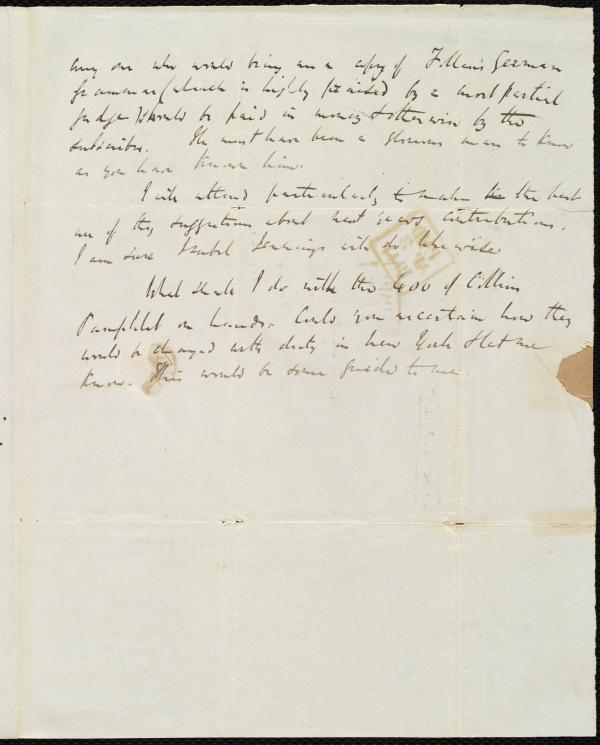 any one who would bring me a copy of Follen's German
Grammar (which is highly praised by a most partial
judge) should be paid in money & otherwise by the
subscriber. He must have been a glorious man to know
as you have known him.
I will attend particularly to make the the best
use of thy suggestions about next years contributions.
I am sure Isabel Jennings will do likewise
What shall I do with the 400 of Collins
Pamphlet on hands. Could you ascertain how they
would be charged with duty in New York & let me
know. This would be some guide to me.